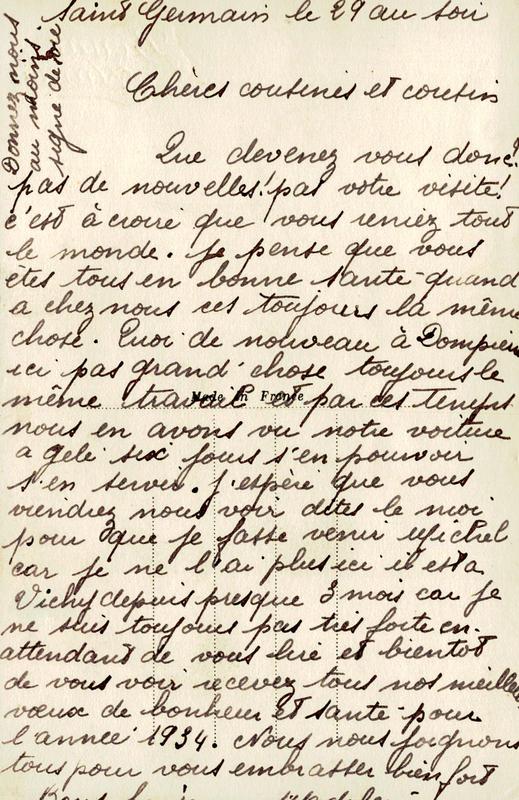 Saint Germain le 29 au soir
Donnez nous
au moins
signe de vie
Chères cousines et cousin
Que devenez vous donc?
pas de nouvelles! pas votre visite!
c'est à croire que vous reniez tout
le monde. Je pense que vous
êtes tous en bonne santé quand
a chez nous ces toujours la même
chose. Quoi de nouveau à Dompierre
ici pas grand' chose toujours le
même travail et par ces temps
Made in France
nous en avons vu notre voiture
a gelé six jours s'en pouvoir
s'en servir. J'espère que vous
viendrez nous voir dites le moi
pour que je fasse venir Michel
car je ne l'ai plus ici il est a
Vichy depuis presque 3 mois car je
ne suis toujours pas très forte en
attendant de vous lire et bientot
de vous voir recevez tous nos meilleurs
vœux de bonheur et santé pour
l'année 1934. Nous nous joignons
tous pour vous embrasser bien fort